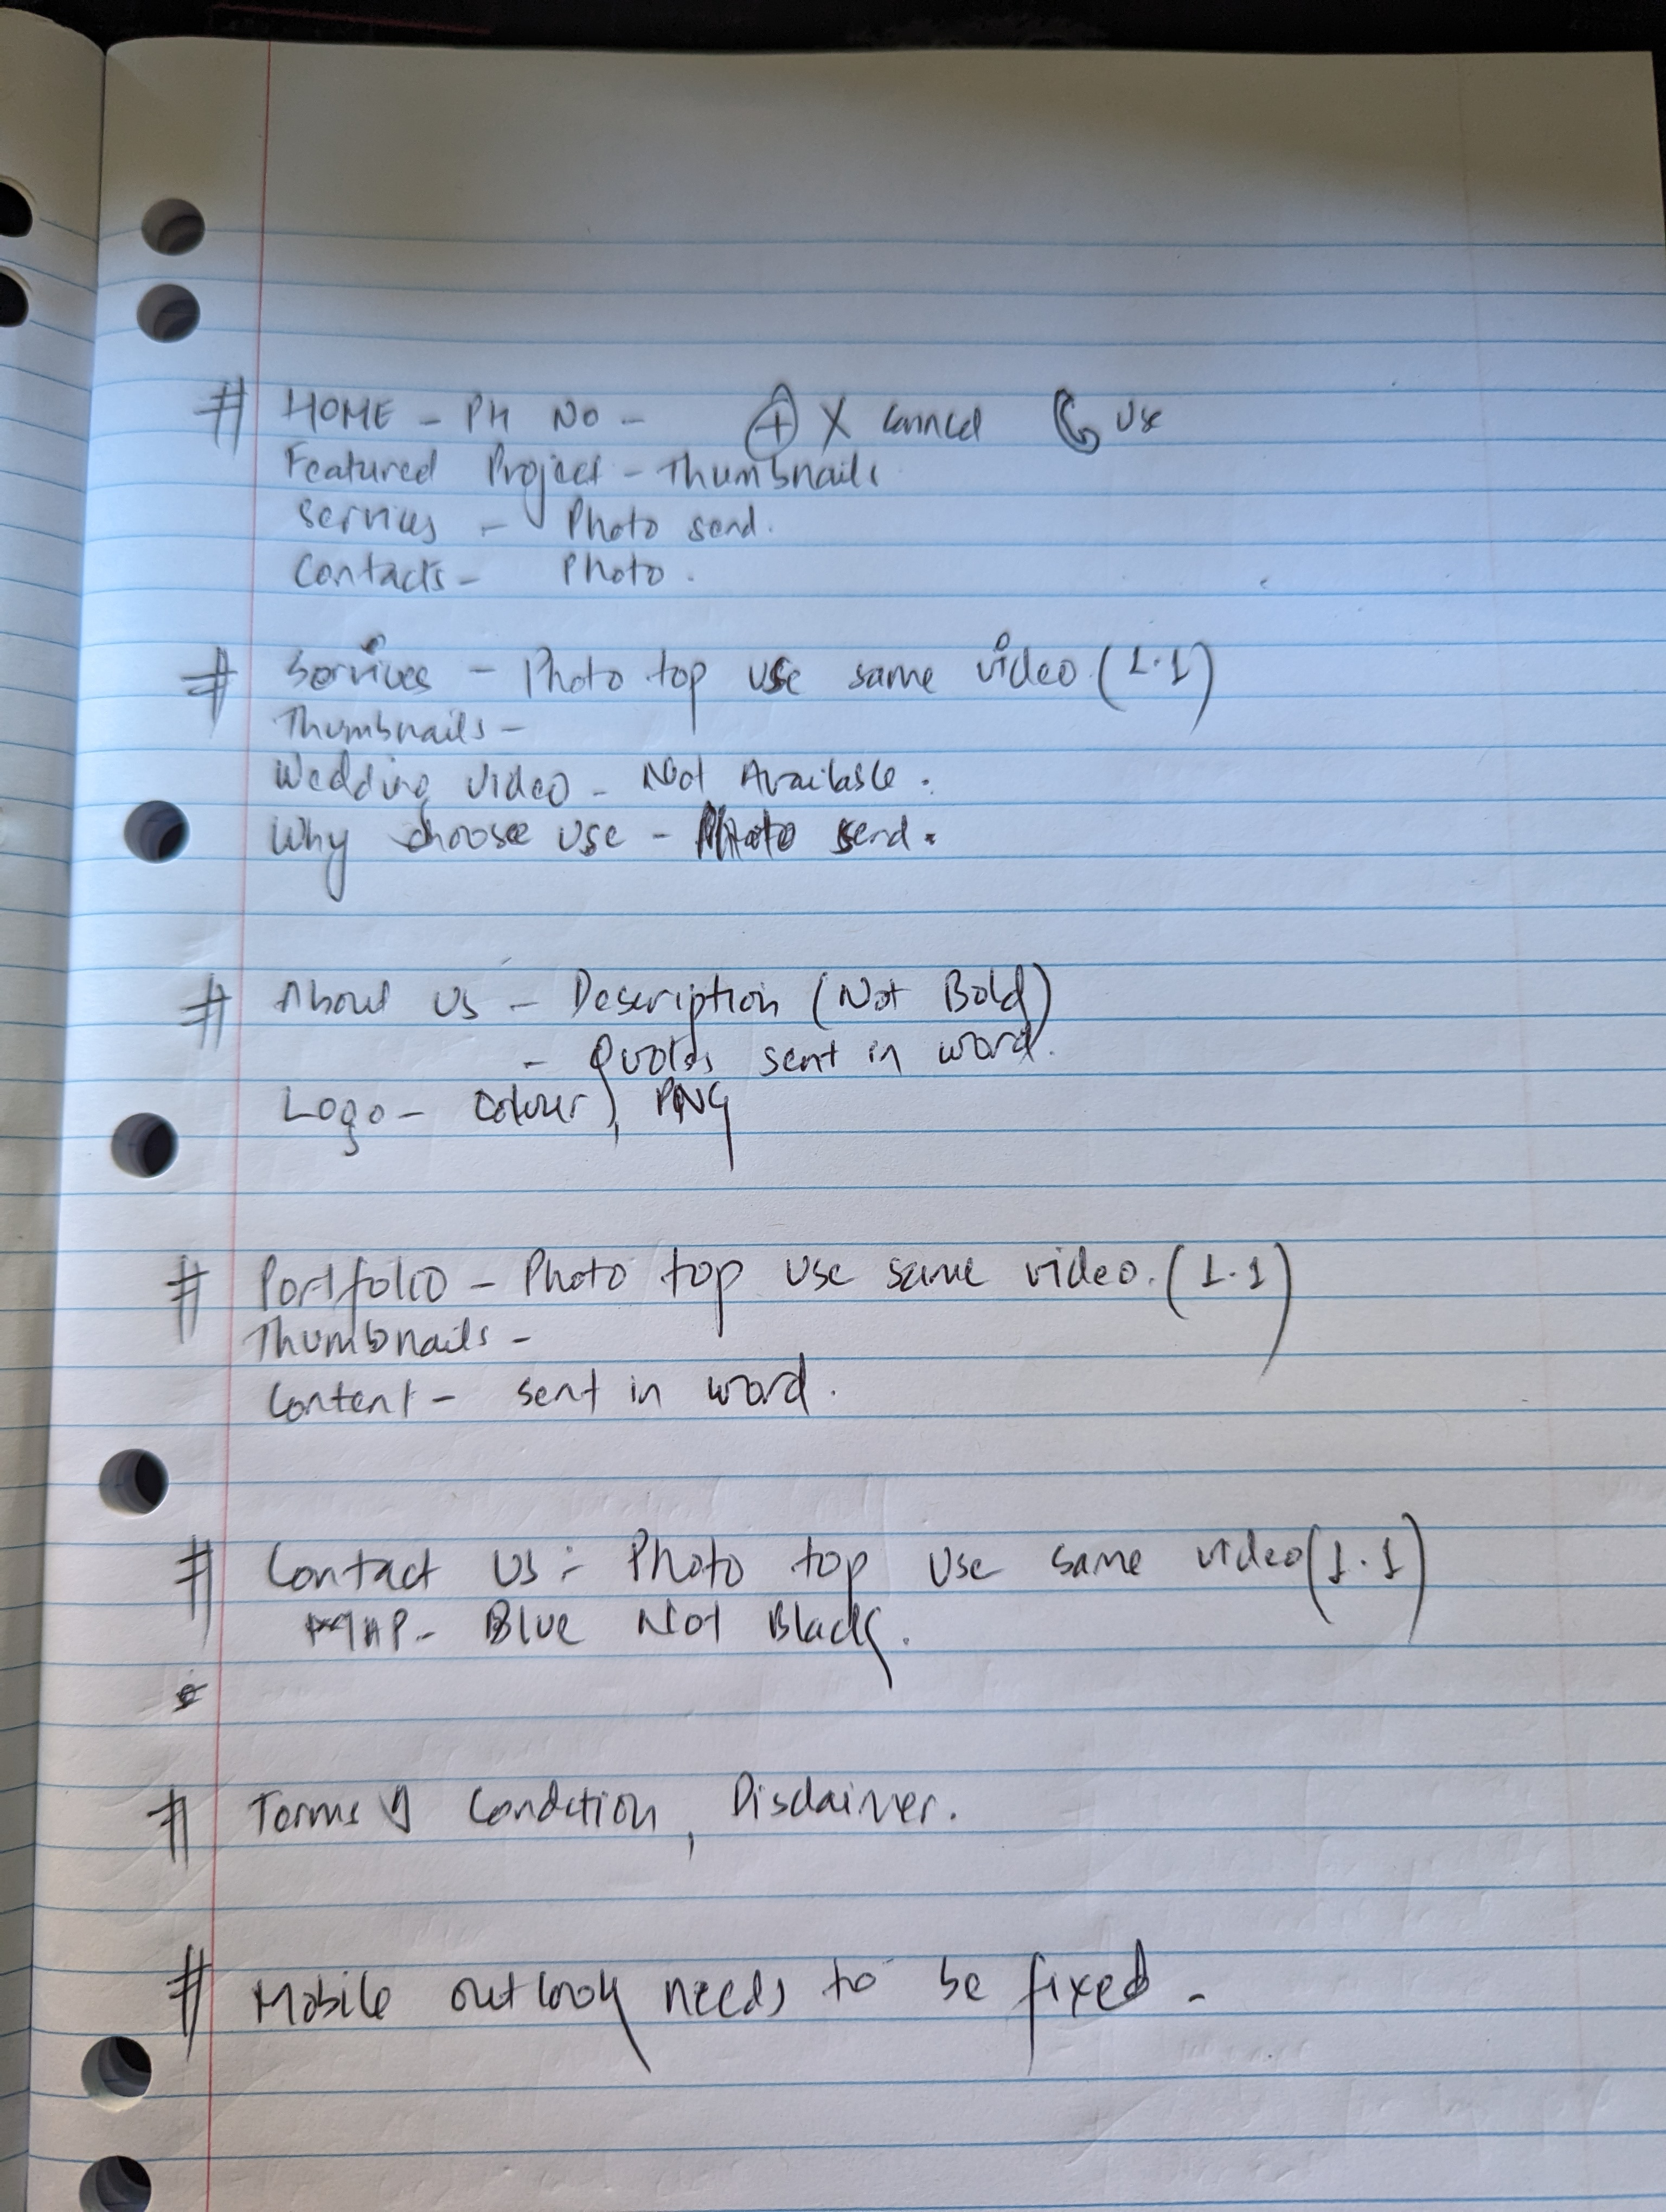 # HOME - PH NO - + X cancel use
Featured Project - Thumbnails
Services - Photo send.
Contacts - Photo.
# Services - Photo top use same video (1.1)
Thumbnails -
Wedding video - Not Available.
Why choose use - Photo send.
# About us - Description (Not Bold)
- Quotes sent in word.
Logo - Colour, PNG
# Portfolio - Photo top use same video. (1.1)
Thumbnails -
Content - sent in word.
# Contact us :- Photo top use same video (1.1)
MAP - Blue Not Black.
# Terms & Condition, Disclaimer.
# Mobile outlook needs to be fixed -